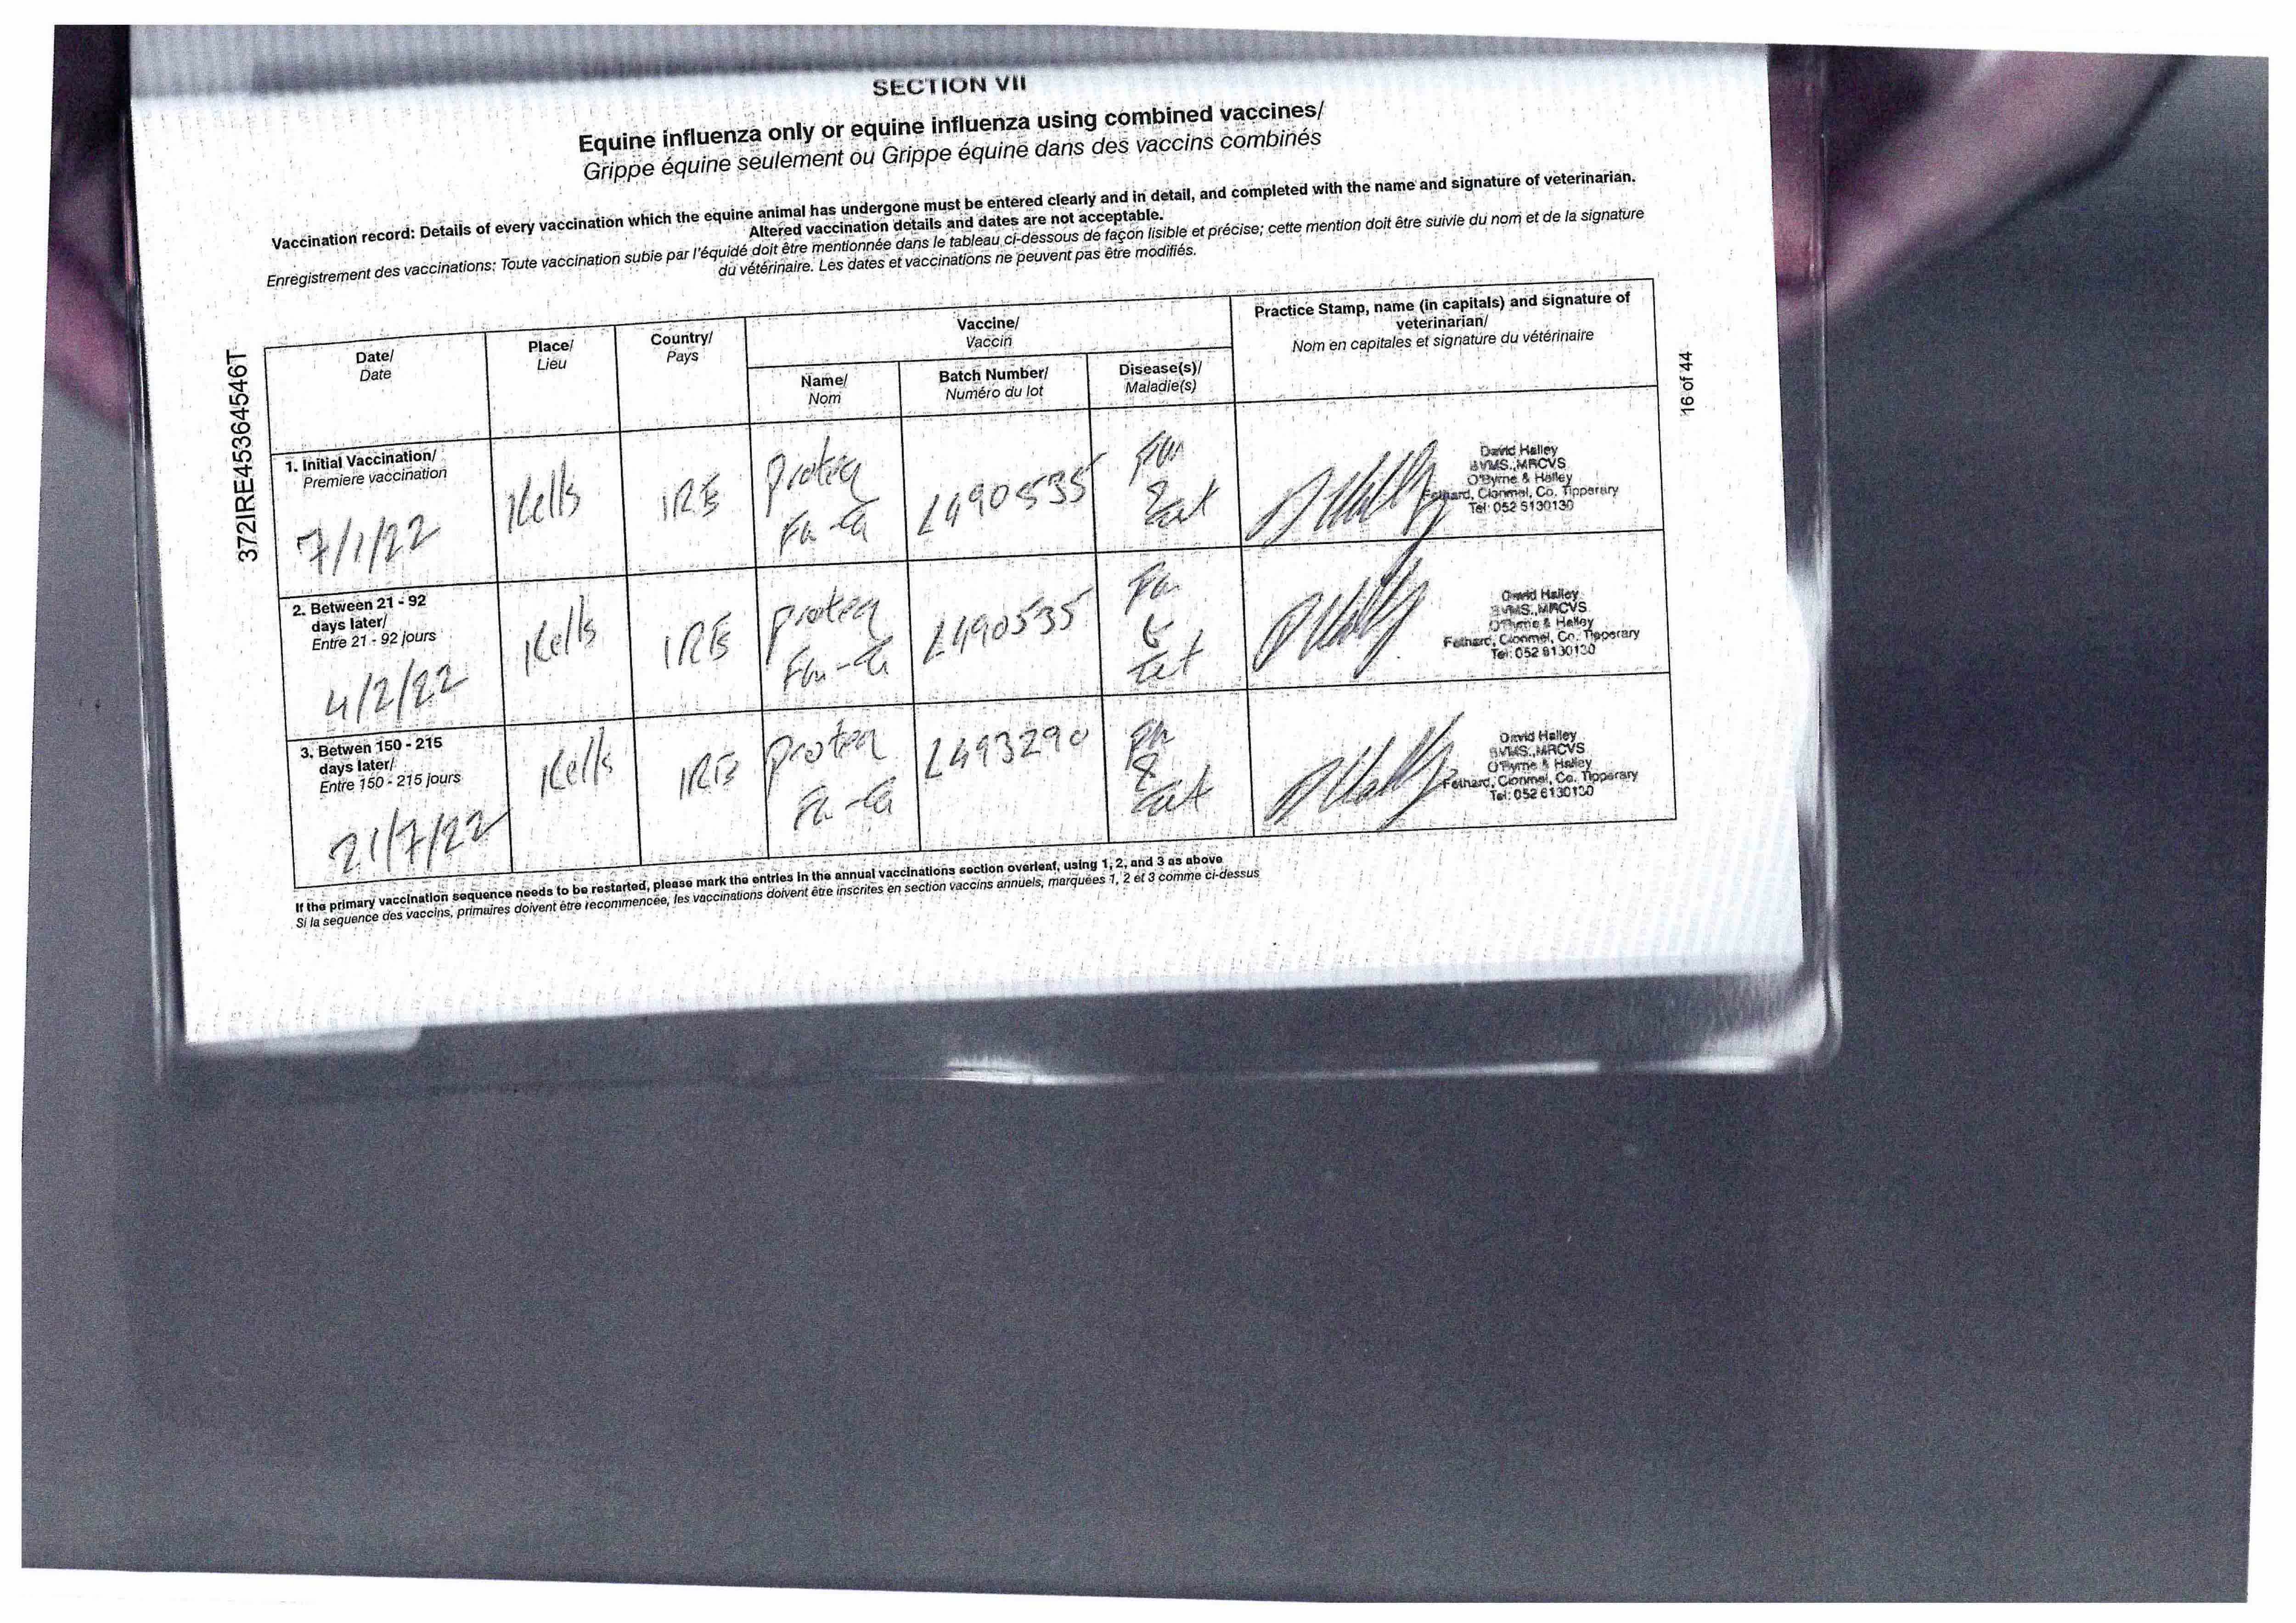 SECTION VII
Equine influenza only or equine influenza using combined vaccines/
Grippe équine seulement ou Grippe équine dans des vaccins combinés
Vaccination record: Details of every vaccination which the equine animal has undergone must be entered clearly and in detail, and completed with the name and signature of veterinarian.
Altered vaccination details and dates are not acceptable.
Enregistrement des vaccinations: Toute vaccination subie par l'équidé doit être mentionnée dans le tableau ci-dessous de façon lisible et précise; cette mention doit être suivie du nom et de la signature
du vétérinaire. Les dates et vaccinations ne peuvent pas être modifiés.
372IRE45364546T
16 of 44
Date/
Date
Place/
Lieu
Country/
Pays
Vaccine/
Vaccin
Name/
Nom
Batch Number/
Numéro du lot
Disease(s)/
Maladie(s)
Practice Stamp, name (in capitals) and signature of
veterinarian/
Nom en capitales et signature du vétérinaire
1. Initial Vaccination/
Premiere vaccination
7/1/22
Kells
IRE
Proteq
L490535
&
Tet
David Halley
BVMS.,MRCVS
O'Byrne & Halley
Fethard, Clonmel, Co. Tipperary
Tel: 052 6130130
2. Between 21 - 92
days later/
Entre 21 - 92 jours
4/2/22
Kells
IRE
Proteq
L490535
&
Tet
David Halley
BVMS.,MRCVS
O'Byrne & Halley
Fethard, Clonmel, Co. Tipperary
Tel: 052 6130130
3. Betwen 150 - 215
days later/
Entre 150 - 215 jours
21/7/22
Kells
IRE
Proteq
L493290
&
Tet
David Halley
BVMS.,MRCVS
O'Byrne & Halley
Fethard, Clonmel, Co. Tipperary
Tel: 052 6130130
If the primary vaccination sequence needs to be restarted, please mark the entries in the annual vaccinations section overleaf, using 1, 2, and 3 as above
Si la sequence des vaccins, primaires doivent être recommencée, les vaccinations doivent être inscrites en section vaccins annuels, marquées 1, 2 et 3 comme ci-dessus